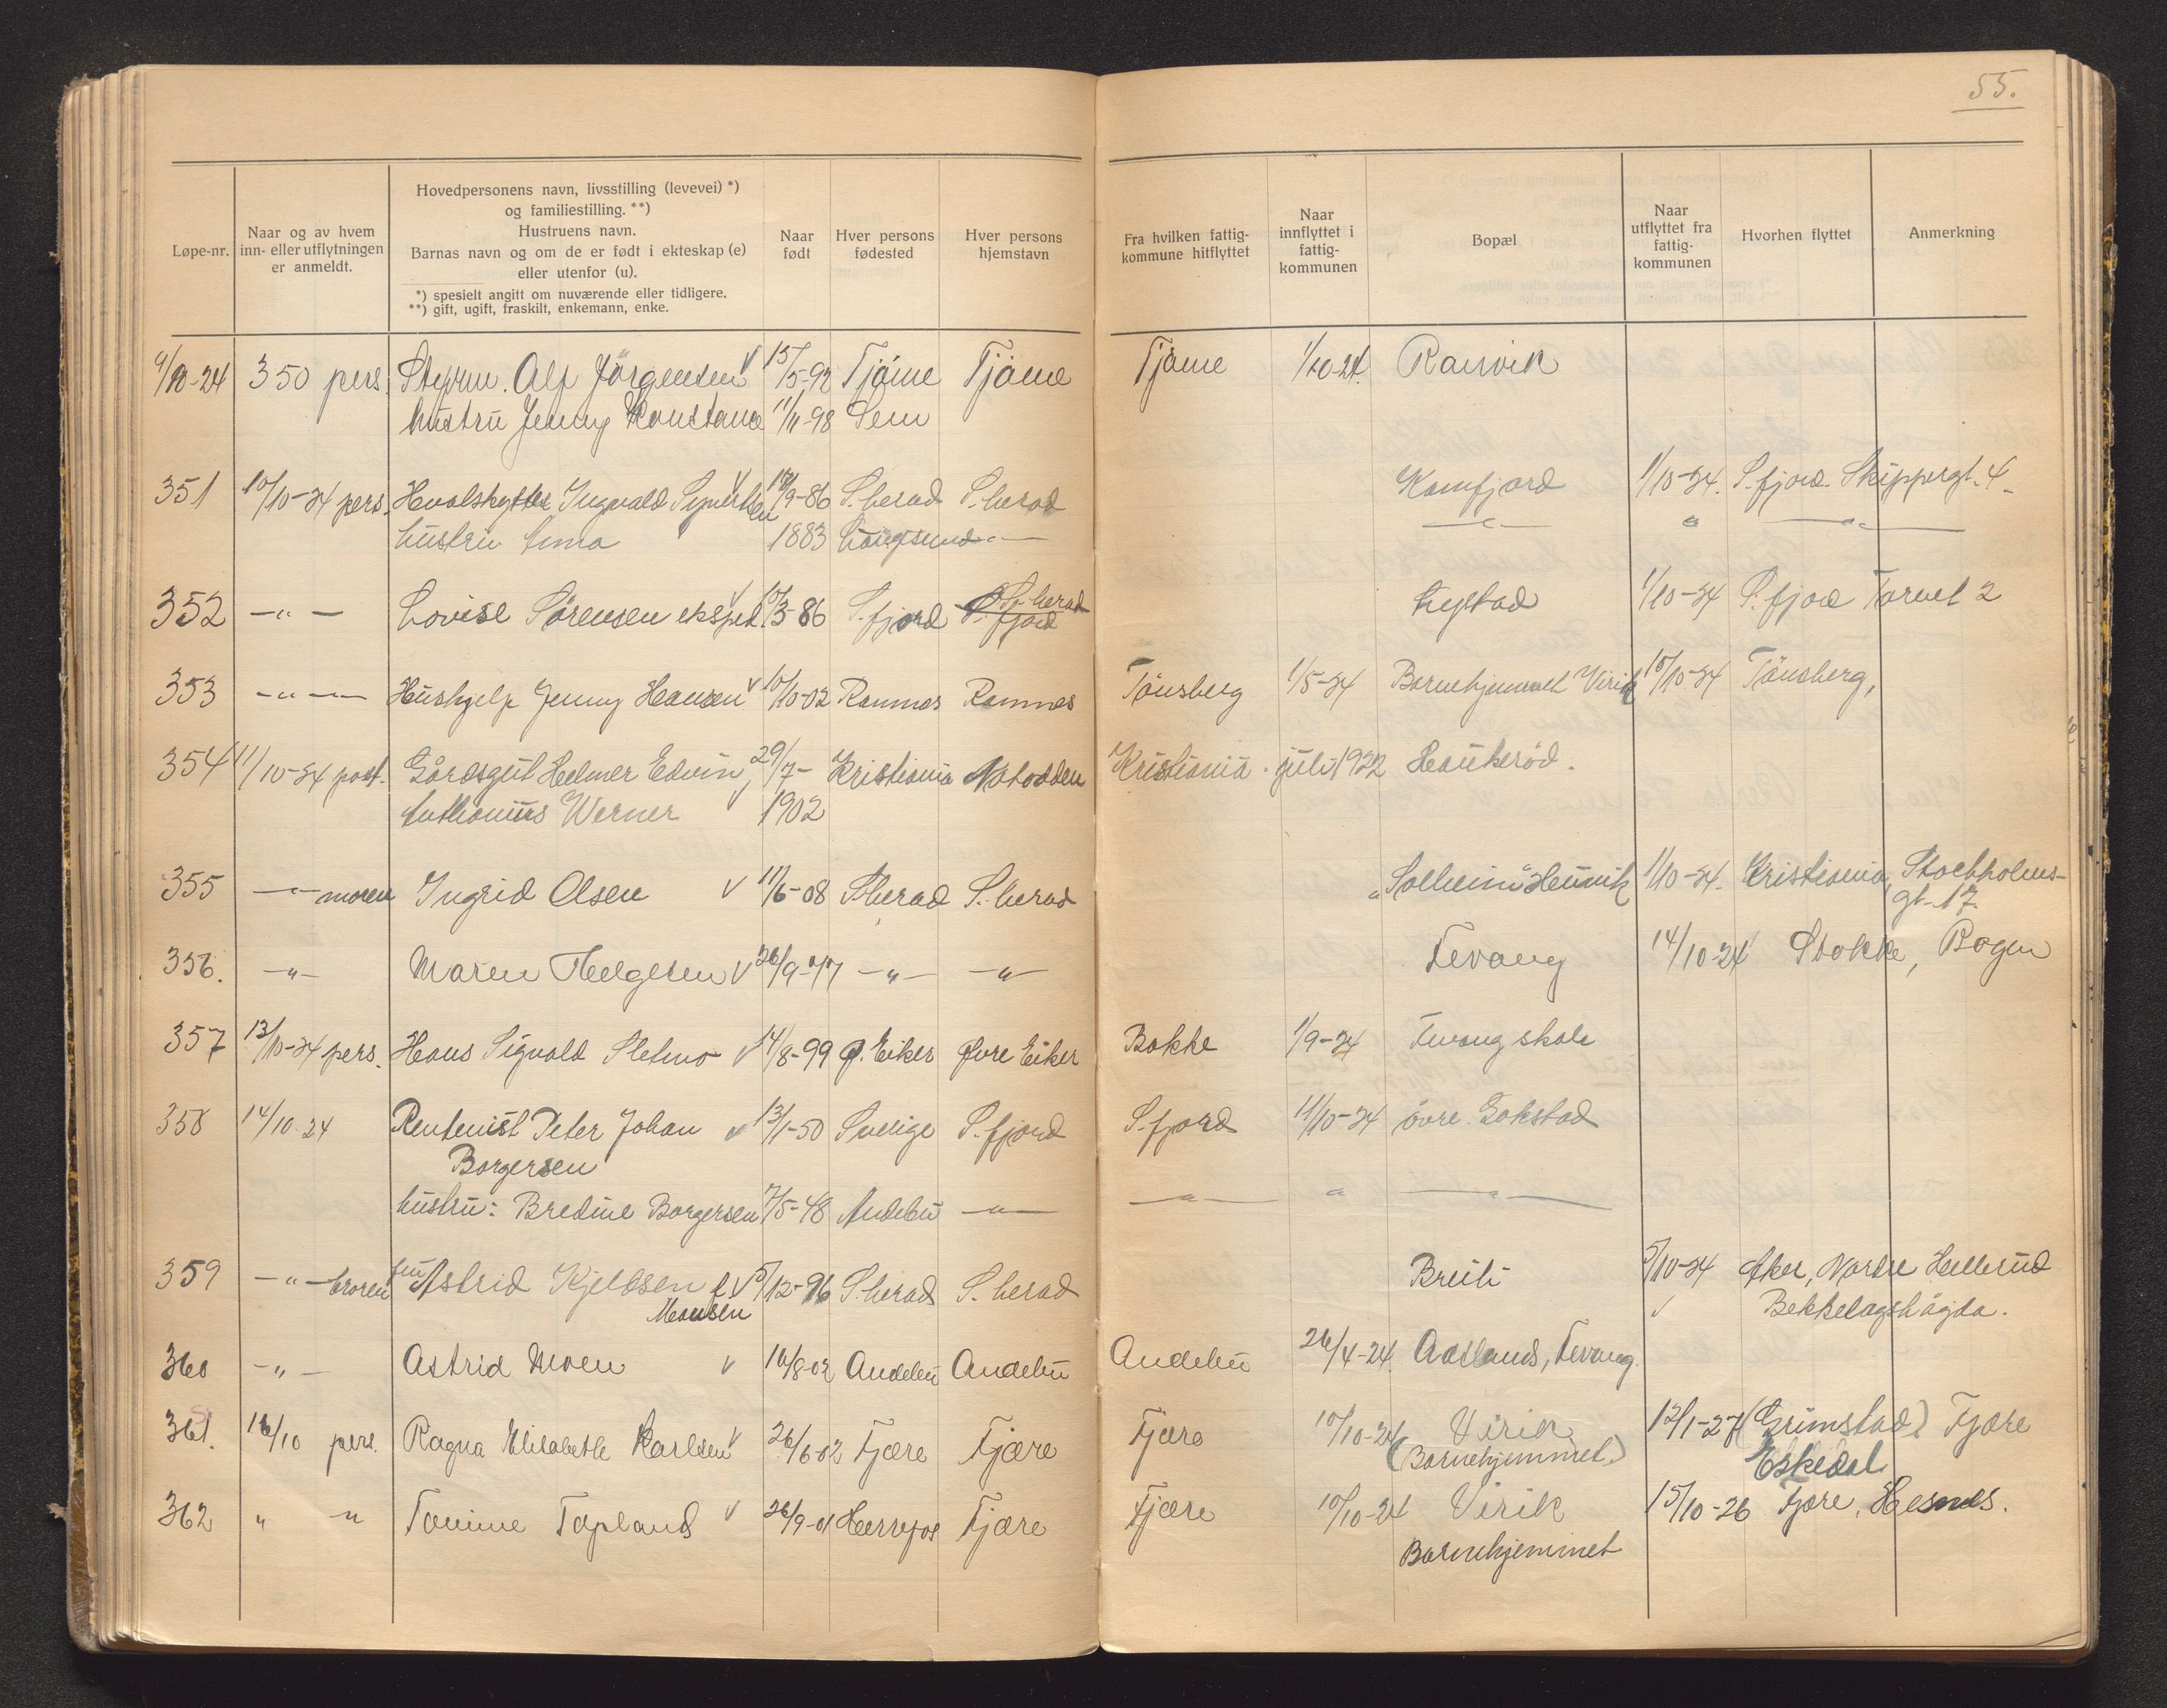 55.
Løpe-nr.
Naar og av hvem
inn- eller utflytningen
er anmeldt.
Hovedpersonens navn, livsstilling (levevei) *)
og familiestilling. **)
Hustruens navn.
Barnas navn og om de er født i ekteskap (e)
eller utenfor (u).
*) spesielt angitt om nuværende eller tidligere.
**) gift, ugift, fraskilt, enkemann, enke.
Naar
født
Hver persons
fødested
Hver persons
hjemstavn
Fra hvilken fattig-
kommune hitflyttet
Naar
innflyttet i
fattig-
kommunen
Bopæl
Naar
utflyttet fra
fattig-
kommunen
Hvorhen flyttet
Anmerkning
9/10-24 350 pers. Styrm. Alf Jörgensen v 15/5-92 Tjöme Tjöme Tjöme 1/10-24. Ranvik
hustru Jenny Konstanse 11/11-98 Sem
351 10/10-24 pers. Hvalskytter Ingvald Syvertsen /9-86 S. herad S. herad Kamfjord 1/10-24. S. fjord. Skippergt. 4.
hustru Anna 1883 Langesund -"- -"- " -"-
352 -"- Lovise Sörensen eksped. /3-86 S. fjord S. herad Nystad 1/10-24 S. fjord Torvet 2
353 -"- Hushjelp Jenny Hansen v 10/10-02 Ramnes Ramnes Tönsberg 1/5-24 Barnehjemmet Virik 15/10-24 Tönsberg,
354 11/10-24 post. Gårdsgut Helmer Edvin, 29/7- Kristiania Notodden Kristiania juli 1922 Haukeröd.
Anthonius Werner v 1902
355 -"- moren Ingrid Olsen v 11/6-08 S. herad S. herad "Solheim" Hunvik 1/10-24. Kristiania, Stockholms-
gt. 17.
356. -"- Maren Helgesen v 26/9-77 -"- -"- Fevang 14/10-24 Stokke, Bogen
357 13/10-24 pers. Hans Sigvald Sletmo v 14/8-99 Ø. Eiker Øvre Eiker Bakke 1/9-24 Fevang skole
358 14/10-24 Rentenist Peter Johan v 13/1-50 Sverige S. fjord S. fjord 11/10-24 övre Gokstad
Borgersen
hustru: Bredine Borgersen 7/5-48 Andebu -"- -"- " -"-
359 -"- broren fru Astrid Kjeldsen f. v 5/12-96 S. herad S. herad Breili 5/10-24 Aker, Nordre Hellerud
Hansen v Bekkelagshögda.
360 -"- Astrid Moen v 16/8-02 Andebu Andebu Andebu 26/4-24 Aasland, Fevang.
361. 16/10 pers. Ragna Elisabeth Karlsen v 26/6-02 Fjære Fjære Fjære 10/10-24 Virik 12/1-27 (Grimstad) Fjære
(Barnehjemmet.) Eskedal
362 " " Tomine Tapland v 26/9-01 Herrefos Fjære Fjære 10/10-24 Virik 15/10-26 Fjære, Hesnes.
Barnehjemmet